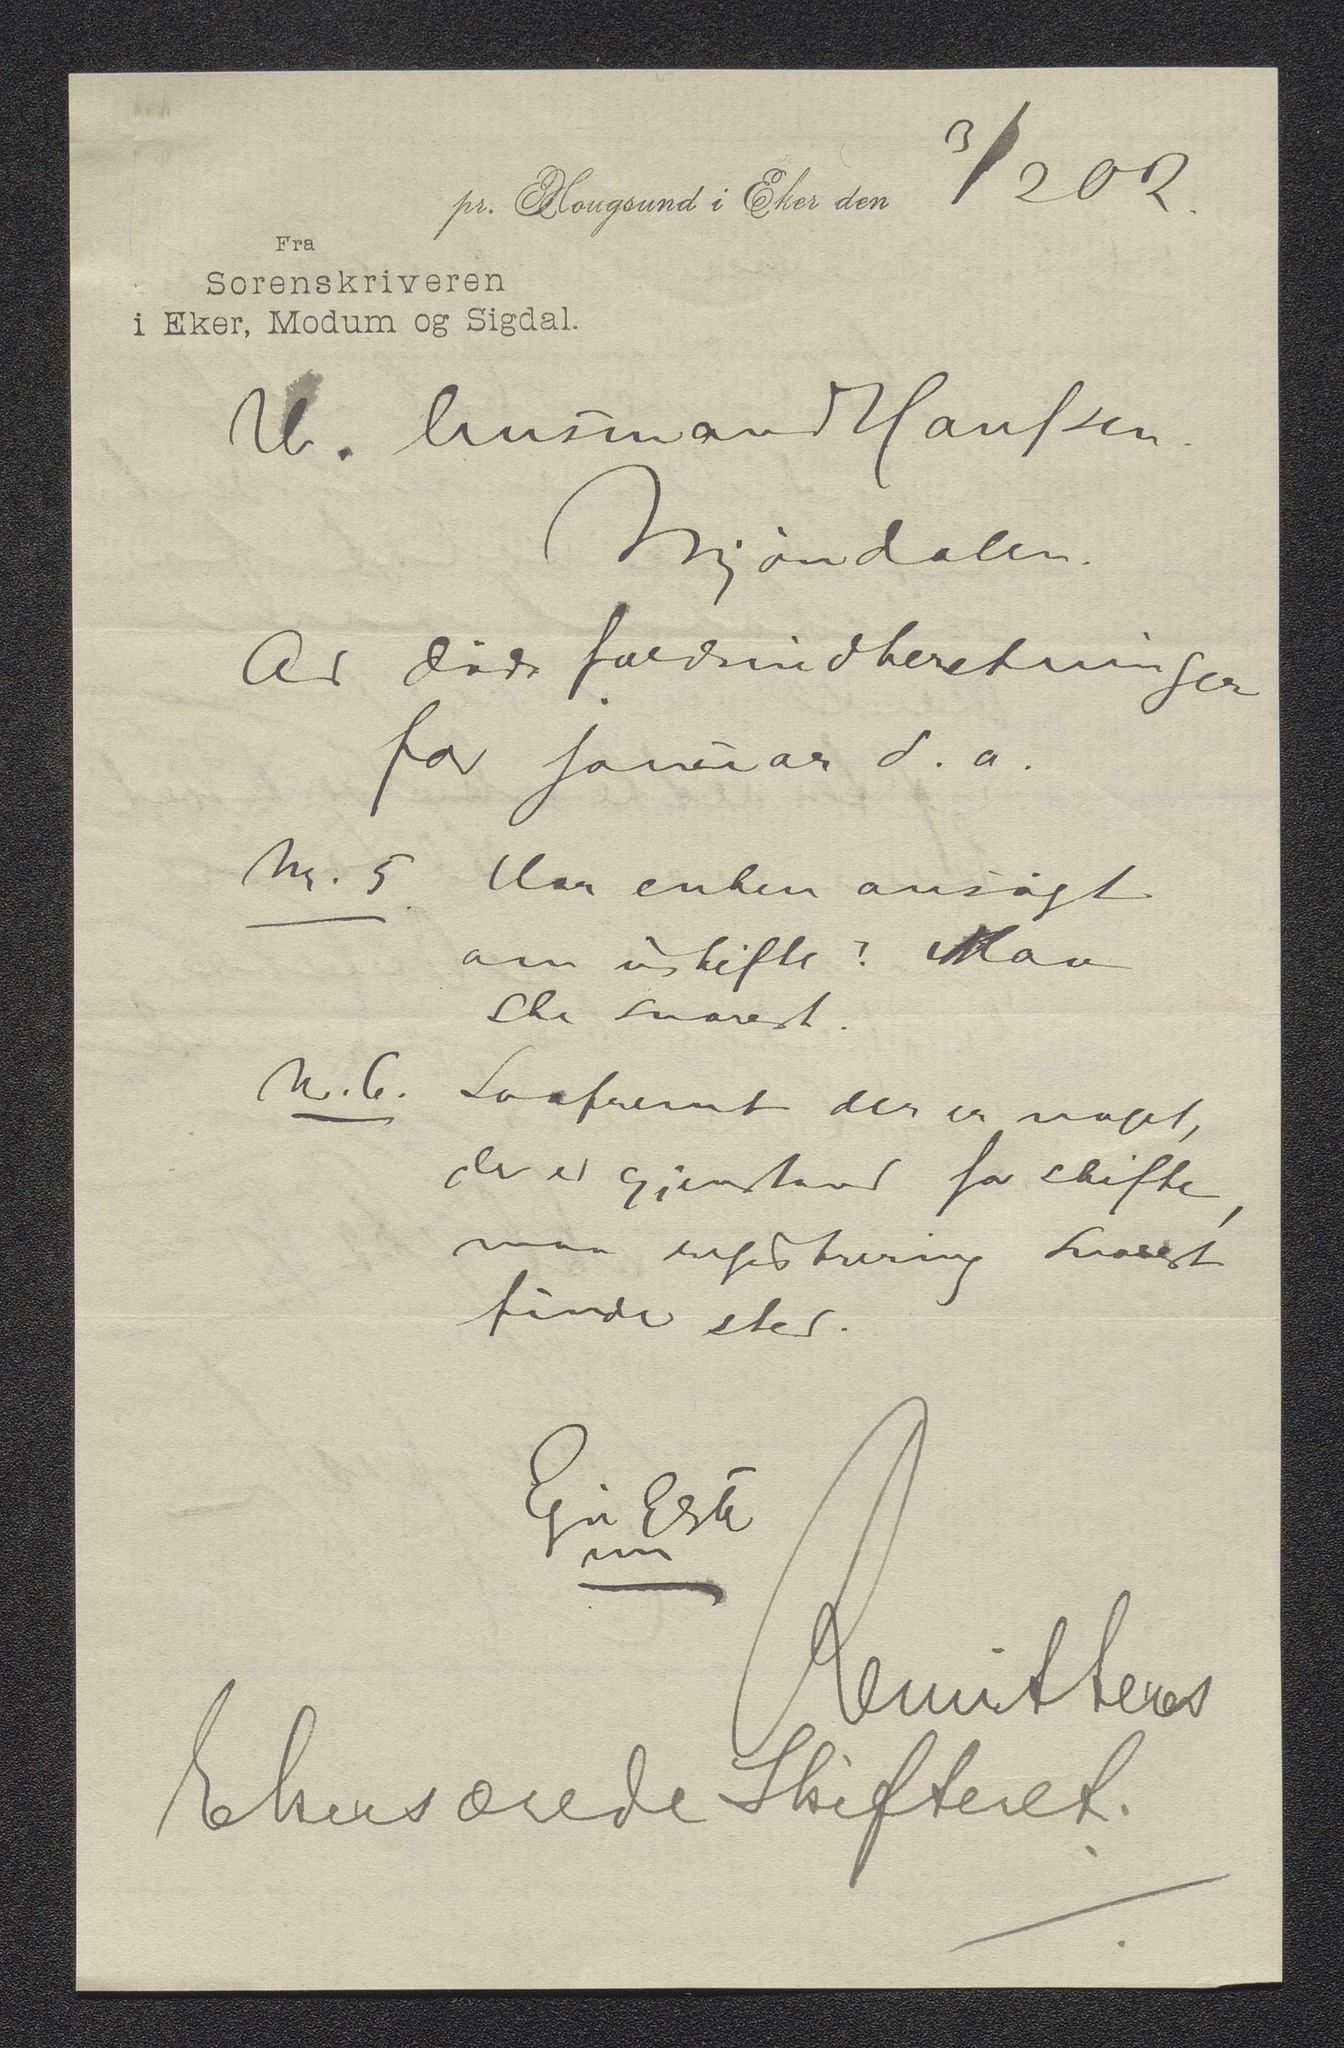 pr. Hougsund i Eker den 3/2 02.
Fra
Sorenskriveren
i Eker, Modum og Sigdal.
Hr. lensmand Hanssen.
Mjøndalen.
Ad dødsfaldsindberetninger
for januar d. a.
Nr. 5. Har enken ansøgt
om uskifte? Maa
ske snarest.
Nr. 6. Saafremt der er noget,
der er gjenstand for skifte,
maa registrering snarest
finde sted.
Remitteres
Ekers ærede Skifteret.